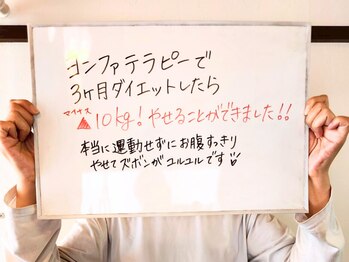 ヨンファテラピーで
3ヶ月ダイエットしたら
マイナス
▲10kg！やせることができました!!
本当に運動せずにお腹すっきり
やせてズボンがユルユルです